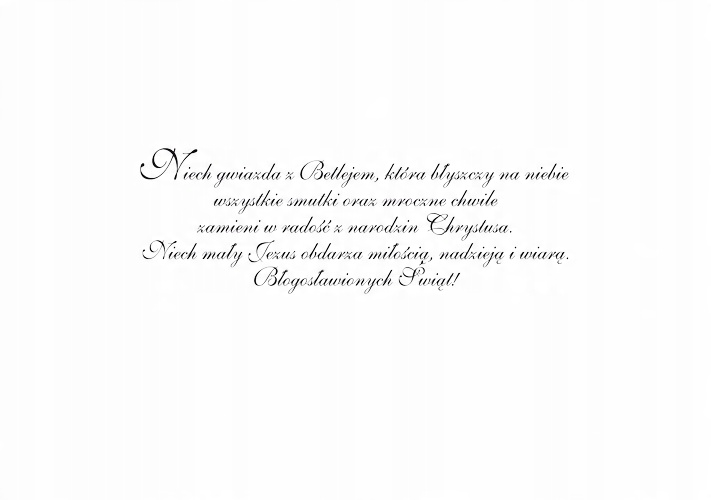 Niech gwiazda z Betlejem, która błyszczy na niebie
wszystkie smutki oraz mroczne chwile
zamieni w radość z narodzin Chrystusa.
Niech mały Jezus obdarza miłością, nadzieją i wiarą.
Błogosławionych Świąt!